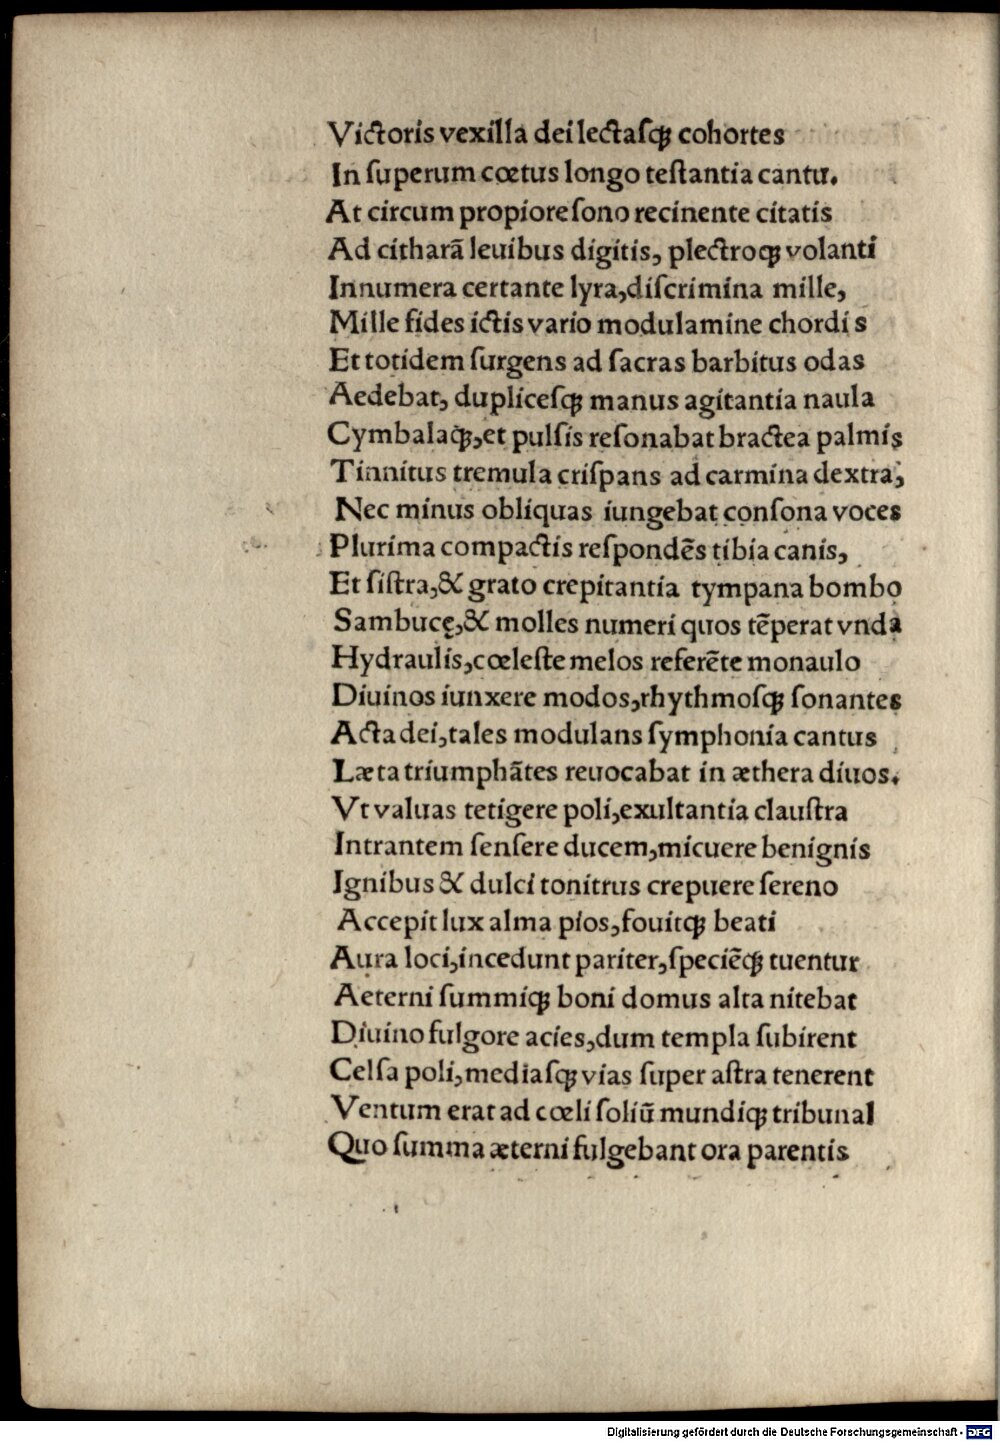 Victoris vexilla dei lectaſqꝫ cohortes
In ſuperum cœtus longo teſtantia cantu.
At circum propiore ſono recinente citatis
Ad citharã leuibus digitis, plectroqꝫ volanti
Innumera certante lyra,diſcrimina mille,
Mille fides ictis vario modulamine chordis
Et totidem ſurgens ad ſacras barbitus odas
Aedebat, dupliceſqꝫ manus agitantia naula
Cymbalaqꝫ,et pulſis reſonabat bractea palmis
Tinnitus tremula criſpans ad carmina dextra,
Nec minus obliquas iungebat conſona voces
Plurima compactis reſpondẽs tibia canis,
Et ſiſtra,& grato crepitantia tympana bombo
Sambucę,& molles numeri quos tẽperat vnda
Hydraulis,cœleſte melos referẽte monaulo
Diuinos iunxere modos,rhythmoſqꝫ ſonantes
Acta dei,tales modulans ſymphonia cantus
Læta triumphãtes reuocabat in æthera diuos.
Vt valuas tetigere poli,exultantia clauſtra
Intrantem ſenſere ducem,micuere benignis
Ignibus & dulci tonitrus crepuere ſereno
Accepit lux alma pios,fouitqꝫ beati
Aura loci,incedunt pariter,ſpeciẽqꝫ tuentur
Aeterni ſummiqꝫ boni domus alta nitebat
Diuino fulgore acies,dum templa ſubirent
Celſa poli,mediaſqꝫ vias ſuper aſtra tenerent
Ventum erat ad cœli ſoliũ mundiqꝫ tribunal
Quo ſumma æterni fulgebant ora parentis
Digitalisierung gefördert durch die Deutsche Forschungsgemeinschaft - DFG